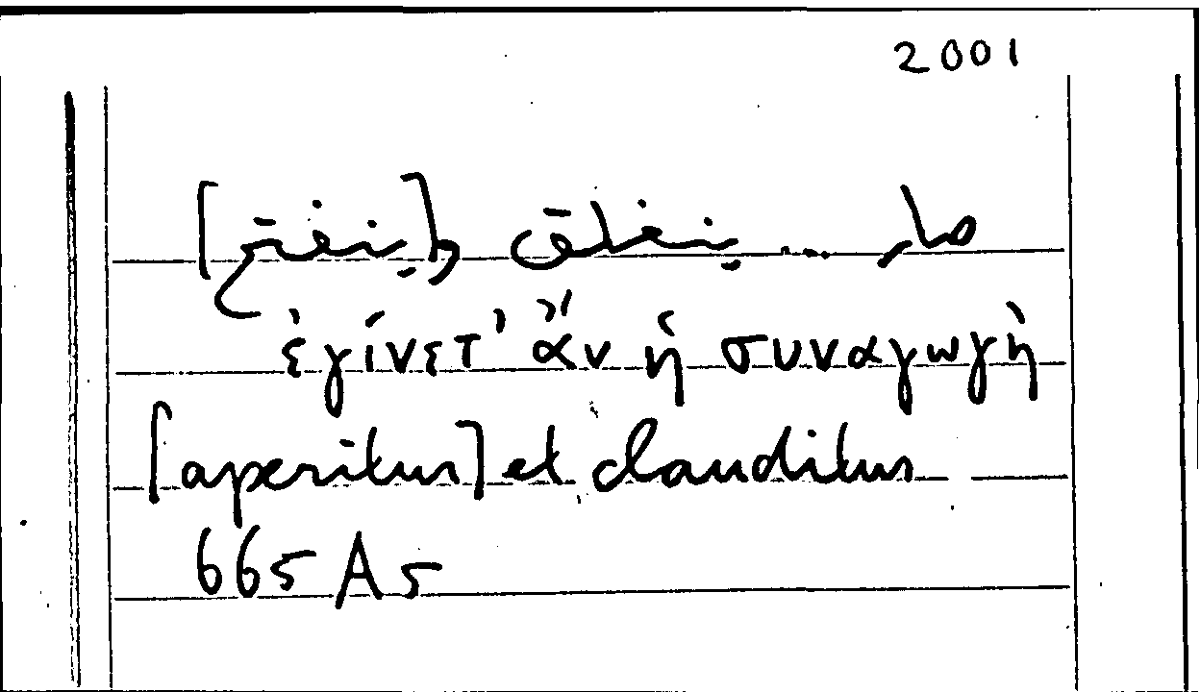 2001
صار ... ينغلق و[ينفتح]
ἐγίνετ' ἂν ἡ συναγωγὴ
[aperitur] et clauditur
665 A 5